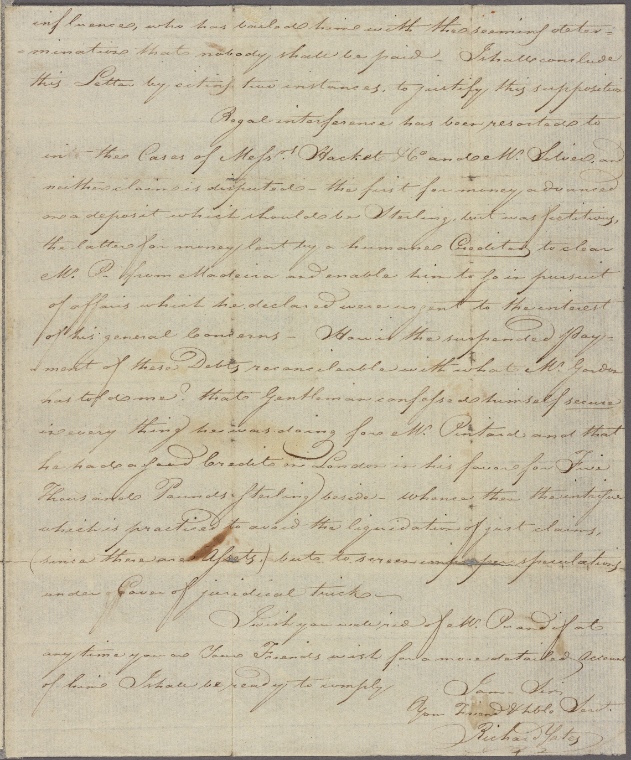 influence, who has backed him with the seeming deter=
=mination that nobody shall be paid - I shall conclude
this Letter by citing two instances, to justify this supposition
Regal interference has been resorted to
in the Cases of Mess.rs Hacket & Co and Mr. Silver, and
neither claim is disputed - the first for money advanced
on a deposit which should be Sterling, but was fictitious,
the latter for money lent by a humane Creditor, to clear
Mr. P. from Madeira and enable him to go in pursuit
of affairs which he declared were urgent to the interest
of his general Concerns - How is the suspended Pay-
ment of these Debts reconcileable with what Mr. Gordon
has told me? that Gentleman confessed himself secure
in every thing he was doing for Mr. Pintard and that
he had a fixed Credit in London in his favor for Five
Thousand Pounds Sterling beside - whence then the intrigue
which is practiced to avoid the liquidation of just claims,
(since there are Assets,) but to screen improper speculations
under Cover of juridical trick -
I wish you well rid of Mr. P. and if at
any time you or Your Friends wish for a more detailed Account
of him I shall be ready to comply
I am Sir
Your Friend & hble Servt.
Richard Yates